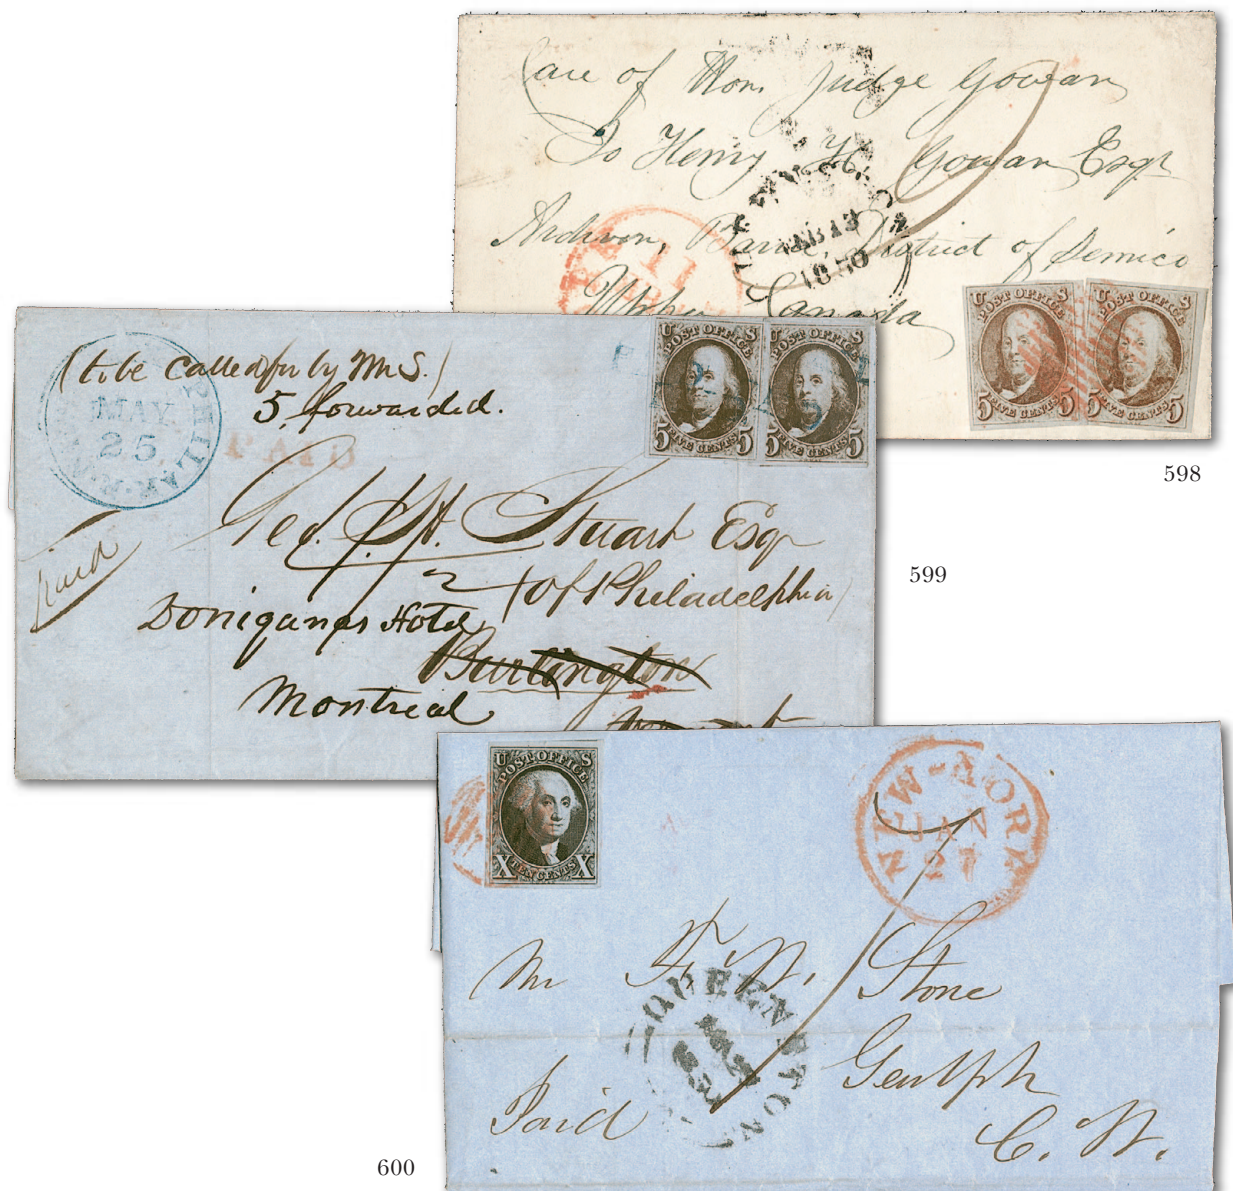 Care of Hon. Judge Gowan
To Henry H. Gowan Esqr
Ardraven, Barrie, District of Semico
Upper Canada
11
QUEENSTON
MAR 13
1850
U S
POST OFFICE
FIVE CENTS
5 5
U S
POST OFFICE
FIVE CENTS
5 5
598
PHILAD
MAY
25
(to be called for by Mr S.)
5, forwarded.
PAID
U S
POST OFFICE
FIVE CENTS
5 5
U S
POST OFFICE
FIVE CENTS
5 5
Geo. H. Stuart Esqr
(of Philadelphia)
paid
Doniganas Hotel
Burlington
Montreal
599
U S
POST OFFICE
X TEN CENTS X
NEW-YORK
JAN
27
Mr F. W. Stone
QUEENSTON
Guelph
Paid
C. W.
600